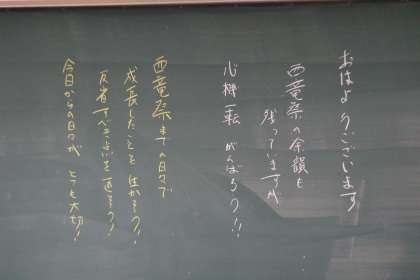 おはようございます
西竜祭の余韻も
残っていますが
心機一転 がんばろう!!
西竜祭までの日々で
成長したことを 生かそう!
反省すべき点を返そう!
今日からの日々が とても大切!